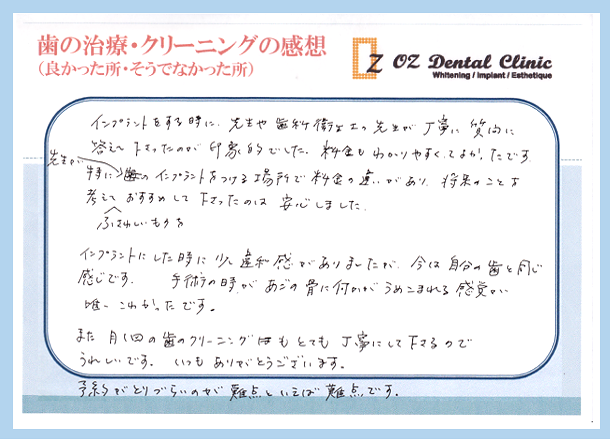 歯の治療・クリーニングの感想
(良かった所・そうでなかった所)
OZ Dental Clinic
Whitening / Implant / Esthetique
インプラントをする時に、先生や歯科衛生士の先生が丁寧に質問に
答えて下さったのが印象的でした。料金もわかりやすくてよかったです
先生が
特に歯のインプラントをつける場所で料金の違いがあり、将来のことを
考えておすすめして下さったのは安心しました。
ふさわしいものを
インプラントにした時に少し違和感がありましたが、今は自分の歯と同じ
感じです。手術の時があごの骨に何かがうめこまれる感覚が
唯一こわかったです。
また月1回の歯のクリーニングはもとても丁寧にして下さるので
うれしいです。いつもありがとうございます。
予約がとりづらいのが難点といえば難点です。